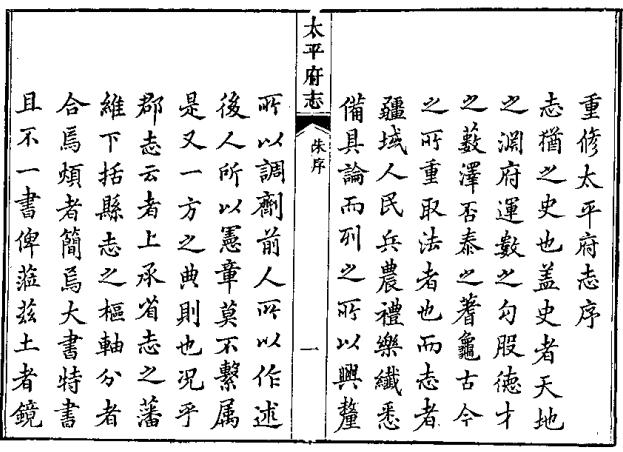 重修太平府志序
志猶之史也盖史者天地
之淵府運數之勾股徳才
之藪澤否泰之蓍龜古今
之所重取法者也而志者
疆域人民兵農禮樂纖悉
備具論而列之所以興釐
太平府志
朱序
一
所以調劑前人所以作述
後人所以憲章莫不繫属
是又一方之典則也况乎
郡志云者上承省志之藩
維下括縣志之樞軸分者
合焉煩者簡焉大書特書
且不一書俾蒞兹土者鏡